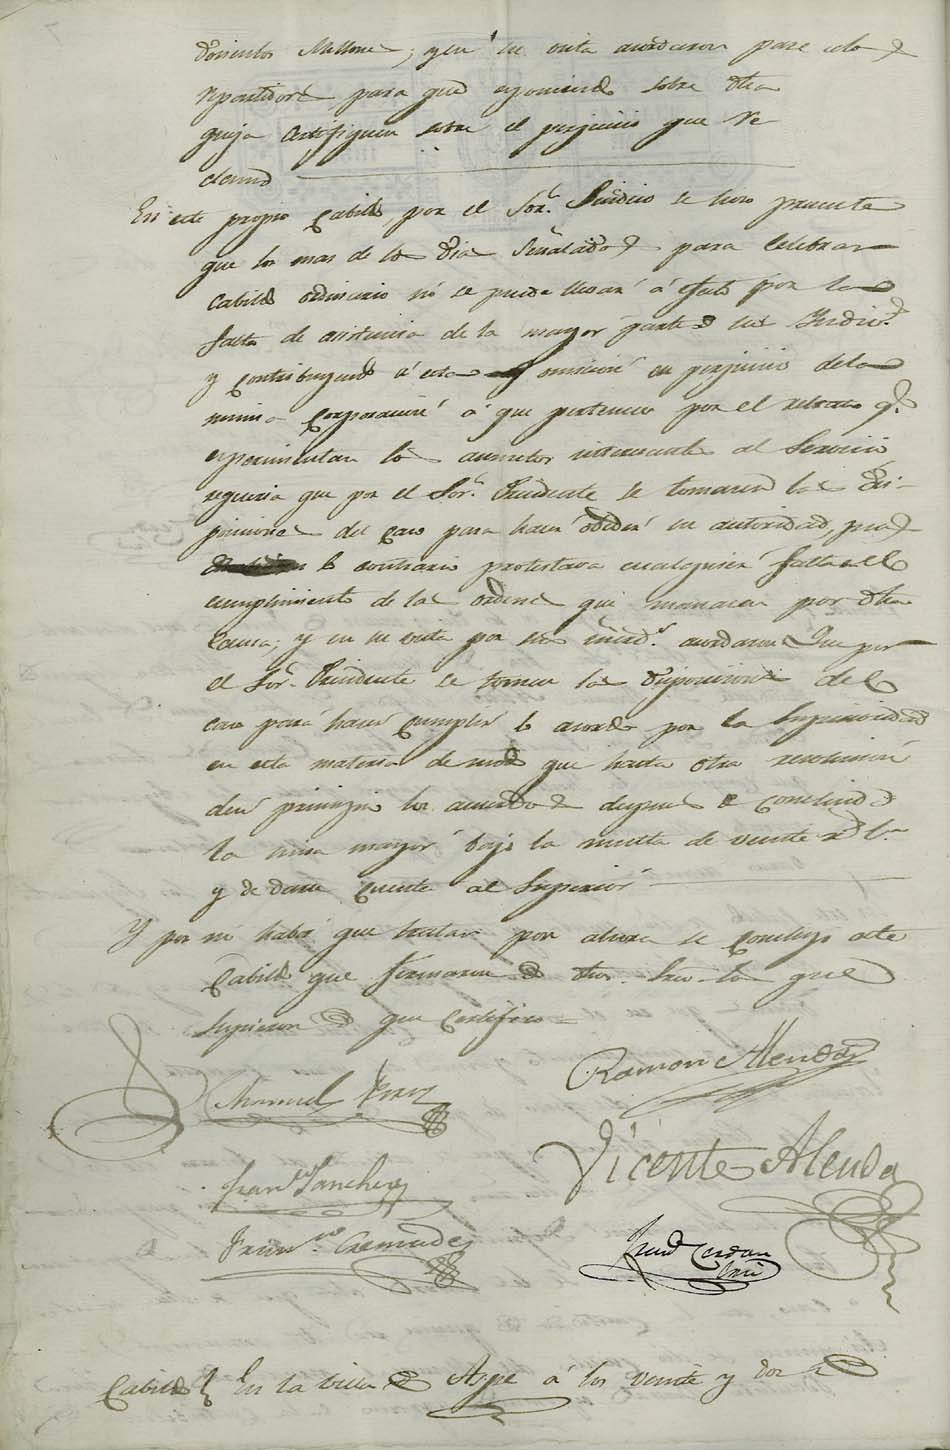 doscientos Millone; y en su vista acordaron pase a los
repartidores, para que exponiendo sobre dha
queja certifiquen sobre el perjuicio que re
clama
En este propio Cabildo, por el Sor. Sindico se hizo presente
que los mas de los dias señalados para Celebrar
Cabildo ordinario nó se puede llevar á efecto por la
falta de asistencia de la mayor parte de sus Yndiv.s
y contribuyendo á esta omisión en perjuicio de la
misma Corporación á que pertenece por el retraso q.e
experimentan los asuntos interesantes al Servicio
requeria que por el Sor. Presidente se tomasen las dis-
posiciones del caso para hacer obedecer su autoridad, pues
lo contrario protestava cualquiera falta al
cumplimiento de las ordenes que manasen por dha
Causa; y en su vista por sus mrds. acordaron Que por
el Sor. Presidente se tomen las disposiciones del
caso para hacer Cumplir lo acordado por la Superioridad
en esta materia de modo que hasta otra resolución
den principio los acuerdos despues de Concluida
la misa mayor bajo la multa de veinte rs. v.n
y de darse Cuenta al Superior
Y por nó haber que tratar por ahora se Concluyó este
Cabildo que firmaron de dhos. Sres. los que
supieron de que Certifico =
Ramon Alenda
Manuel
Vicente Alenda
Fran.co Sanchez
Fran.co Cremades
Cerdan
Srio
Cabildo En la Villa de Aspe á los veinte y dos